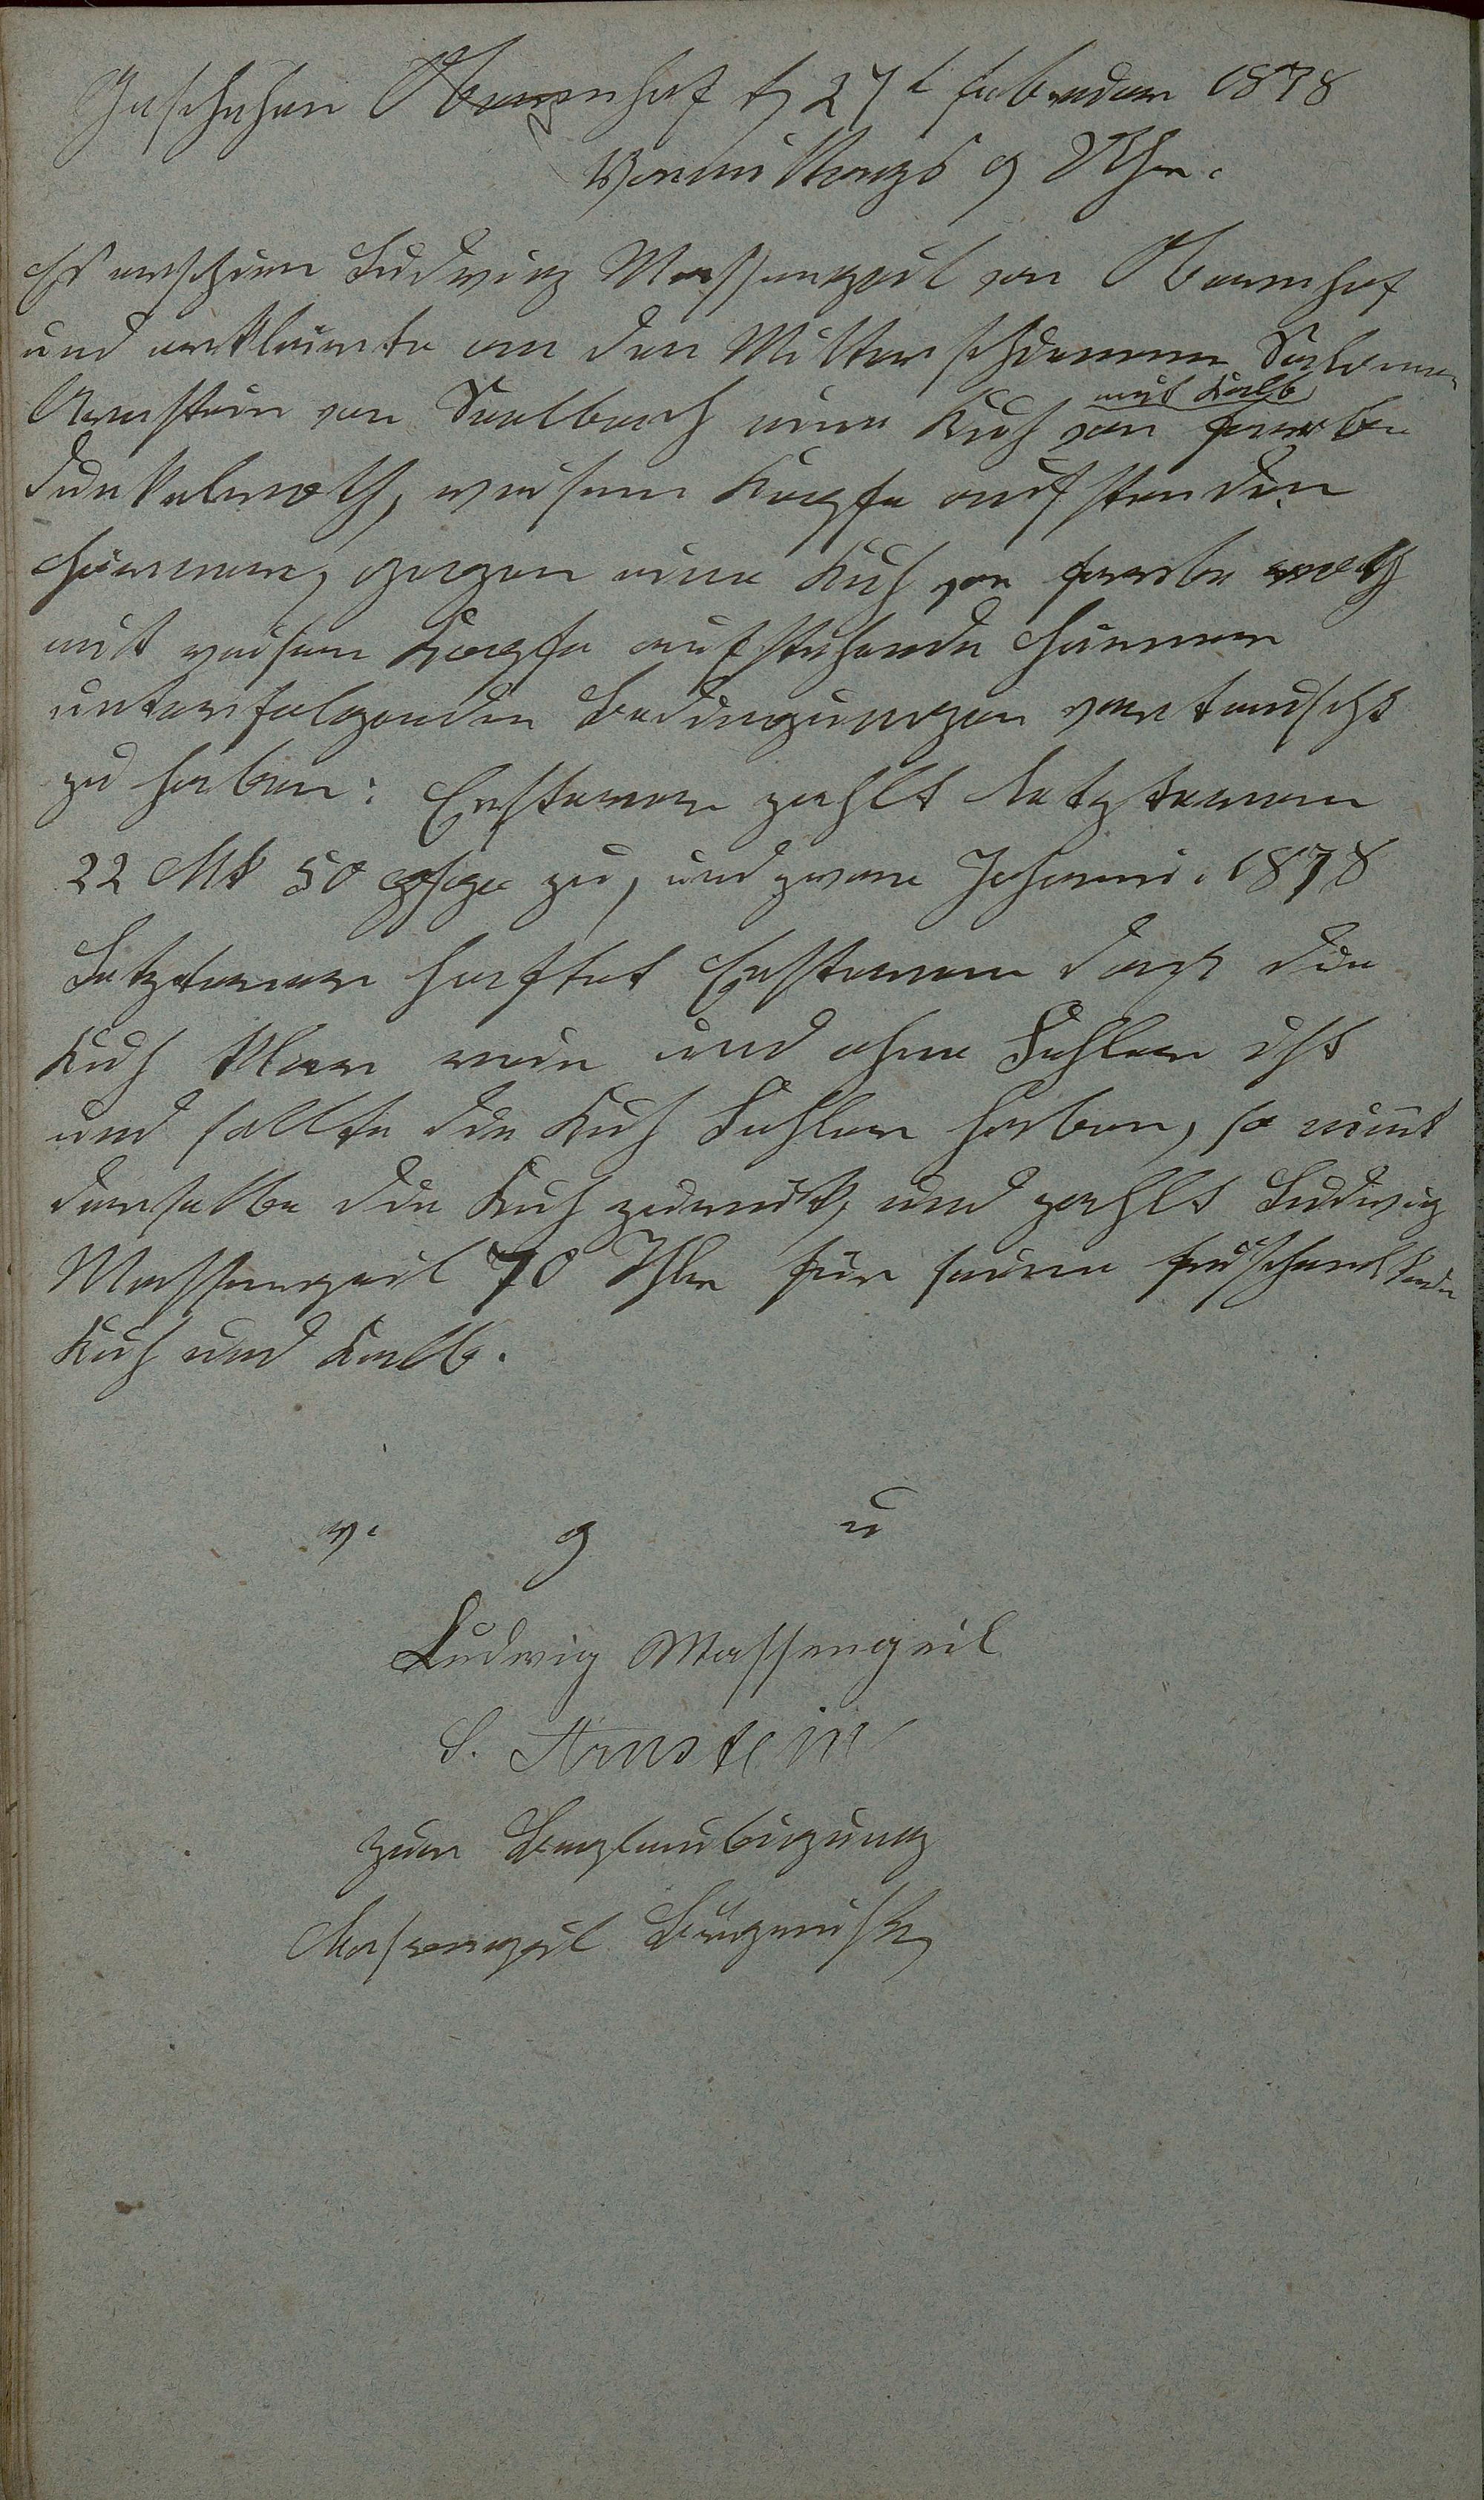 Geschehen Obernhof d 27t februar 1878
Vormittags 9 Uhr.
Es erschien Ludwig Massengeil von Obernhof
und erklärte an den Salomon
Arnstein von Seelbach eine Kuh von farbe
mit Kalb
dunkelroth, weisem Kopfe aufstenden
Hörner, gegen eine Kuh von farbe roth
mit weisem Kopfe aufstehende Hörner
unterfolgenden Bedingungen vertauscht
zu haben: Ersterer zahlt Letzterem
22 Mk 50 zu, und zwar Johanni. 1878
Letzterer haftet Ersterem das die
Kuh klar rein und ohne Fehler ist
und sollte die Kuh Fehler haben, so nimt
derselbe die Kuh zurück, und zahlt Ludwig
Massengeil 70 Thlr für seine
Kuh und Kalb.
v. g u
Ludwig Massengeil
S. Arnstein
zur Beglaubigung
Massengeil Bürgermstr